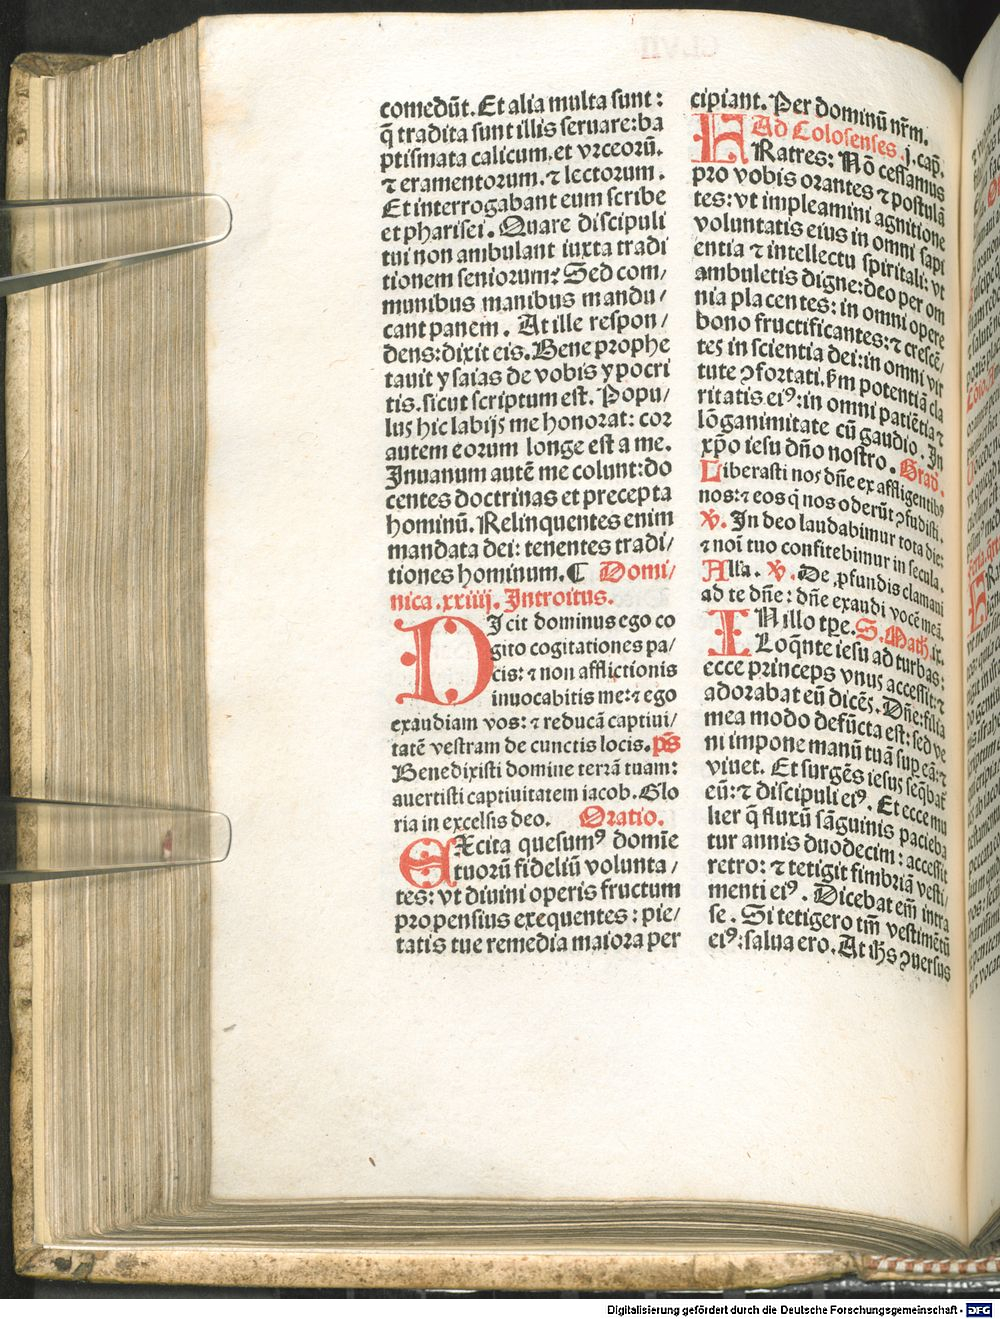 comedūt. Et alia multa sunt:
q̄ tradita sunt illis seruare: ba
ptismata calicum. et vrceorū.
⁊ eramentorum. ⁊ lectorum.
Et interrogabant eum scribe
et pharisei. Quare discipuli
tui non ambulant iuxta tradi
tionem seniorum? Sed com/
munibus manibus mandu/
cant panem. At ille respon/
dens: dixit eis. Bene prophe
tauit ysaias de vobis ypocri
tis. sicut scriptum est. Popu/
lus hic labijs me honorat: cor
autem eorum longe est a me.
Inuanum autē me colunt: do
centes doctrinas et precepta
hominū. Relinquentes enim
mandata dei: tenentes tradi/
tiones hominum. ¶ Domi/
nica .xxiiij. Introitus.
DIcit dominus ego co
gito cogitationes pa/
cis: ⁊ non afflictionis
inuocabitis me: ⁊ ego
exaudiam vos: ⁊ reducā captiui/
tatē vestram de cunctis locis. ps̄
Benedixisti domine terrā tuam:
auertisti captiuitatem iacob. Glo
ria in excelsis deo. Oratio.
EXcita quesumꝰ domīe
tuorū fideliū volunta/
tes: vt diuini operis fructum
propensius exequentes: pie/
tatis tue remedia maiora per
cipiant. Per dominū nr̄m.
Ad Colosenses .j. cap̄.
FRatres: Nō cessamus
pro vobis orantes ⁊ postulā
tes: vt impleamini agnitione
voluntatis eius in omni sapi
entia ⁊ intellectu spiritali: vt
ambuletis digne: deo per om
nia placentes: in omni opere
bono fructificantes: ⁊ crescē/
tes in scientia dei: in omni vir
tute ꝯfortati. ẜm potentiā cla
ritatis eiꝰ: in omni patiētia ⁊
lōganimitate cū gaudio. In
xp̄o iesu dn̄o nostro. Grad̄.
Liberasti nos dn̄e ex affligentibꝰ
nos: ⁊ eos q̄ nos oderūt ꝯfudisti.
℣. In deo laudabimur tota die:
⁊ noī tuo confitebimur in secula.
Alła. ℣. De ꝓfundis clamani
ad te dn̄e: dn̄e exaudi vocē meā.
IN illo tp̄e. S. Math. ix.
Loq̄nte iesu ad turbas:
ecce princeps vnus accessit: ⁊
adorabat eū dicēs. Dn̄e: filia
mea modo defūcta est: sed ve
ni impone manū tuā suꝑ eā: ⁊
viuet. Et surgēs iesus seq̄bat̄
eū: ⁊ discipuli eiꝰ. Et ecce mu
lier q̄ fluxū sāguinis pacieba
tur annis duodecim: accessit
retro: ⁊ tetigit fimbriā vesti/
menti eiꝰ. Dicebat em̄ intra
se. Si tetigero tm̄ vestimētū
eiꝰ: salua ero. At ih̄s ꝯuersus
Digitalisierung gefördert durch die Deutsche Forschungsgemeinschaft - DFG